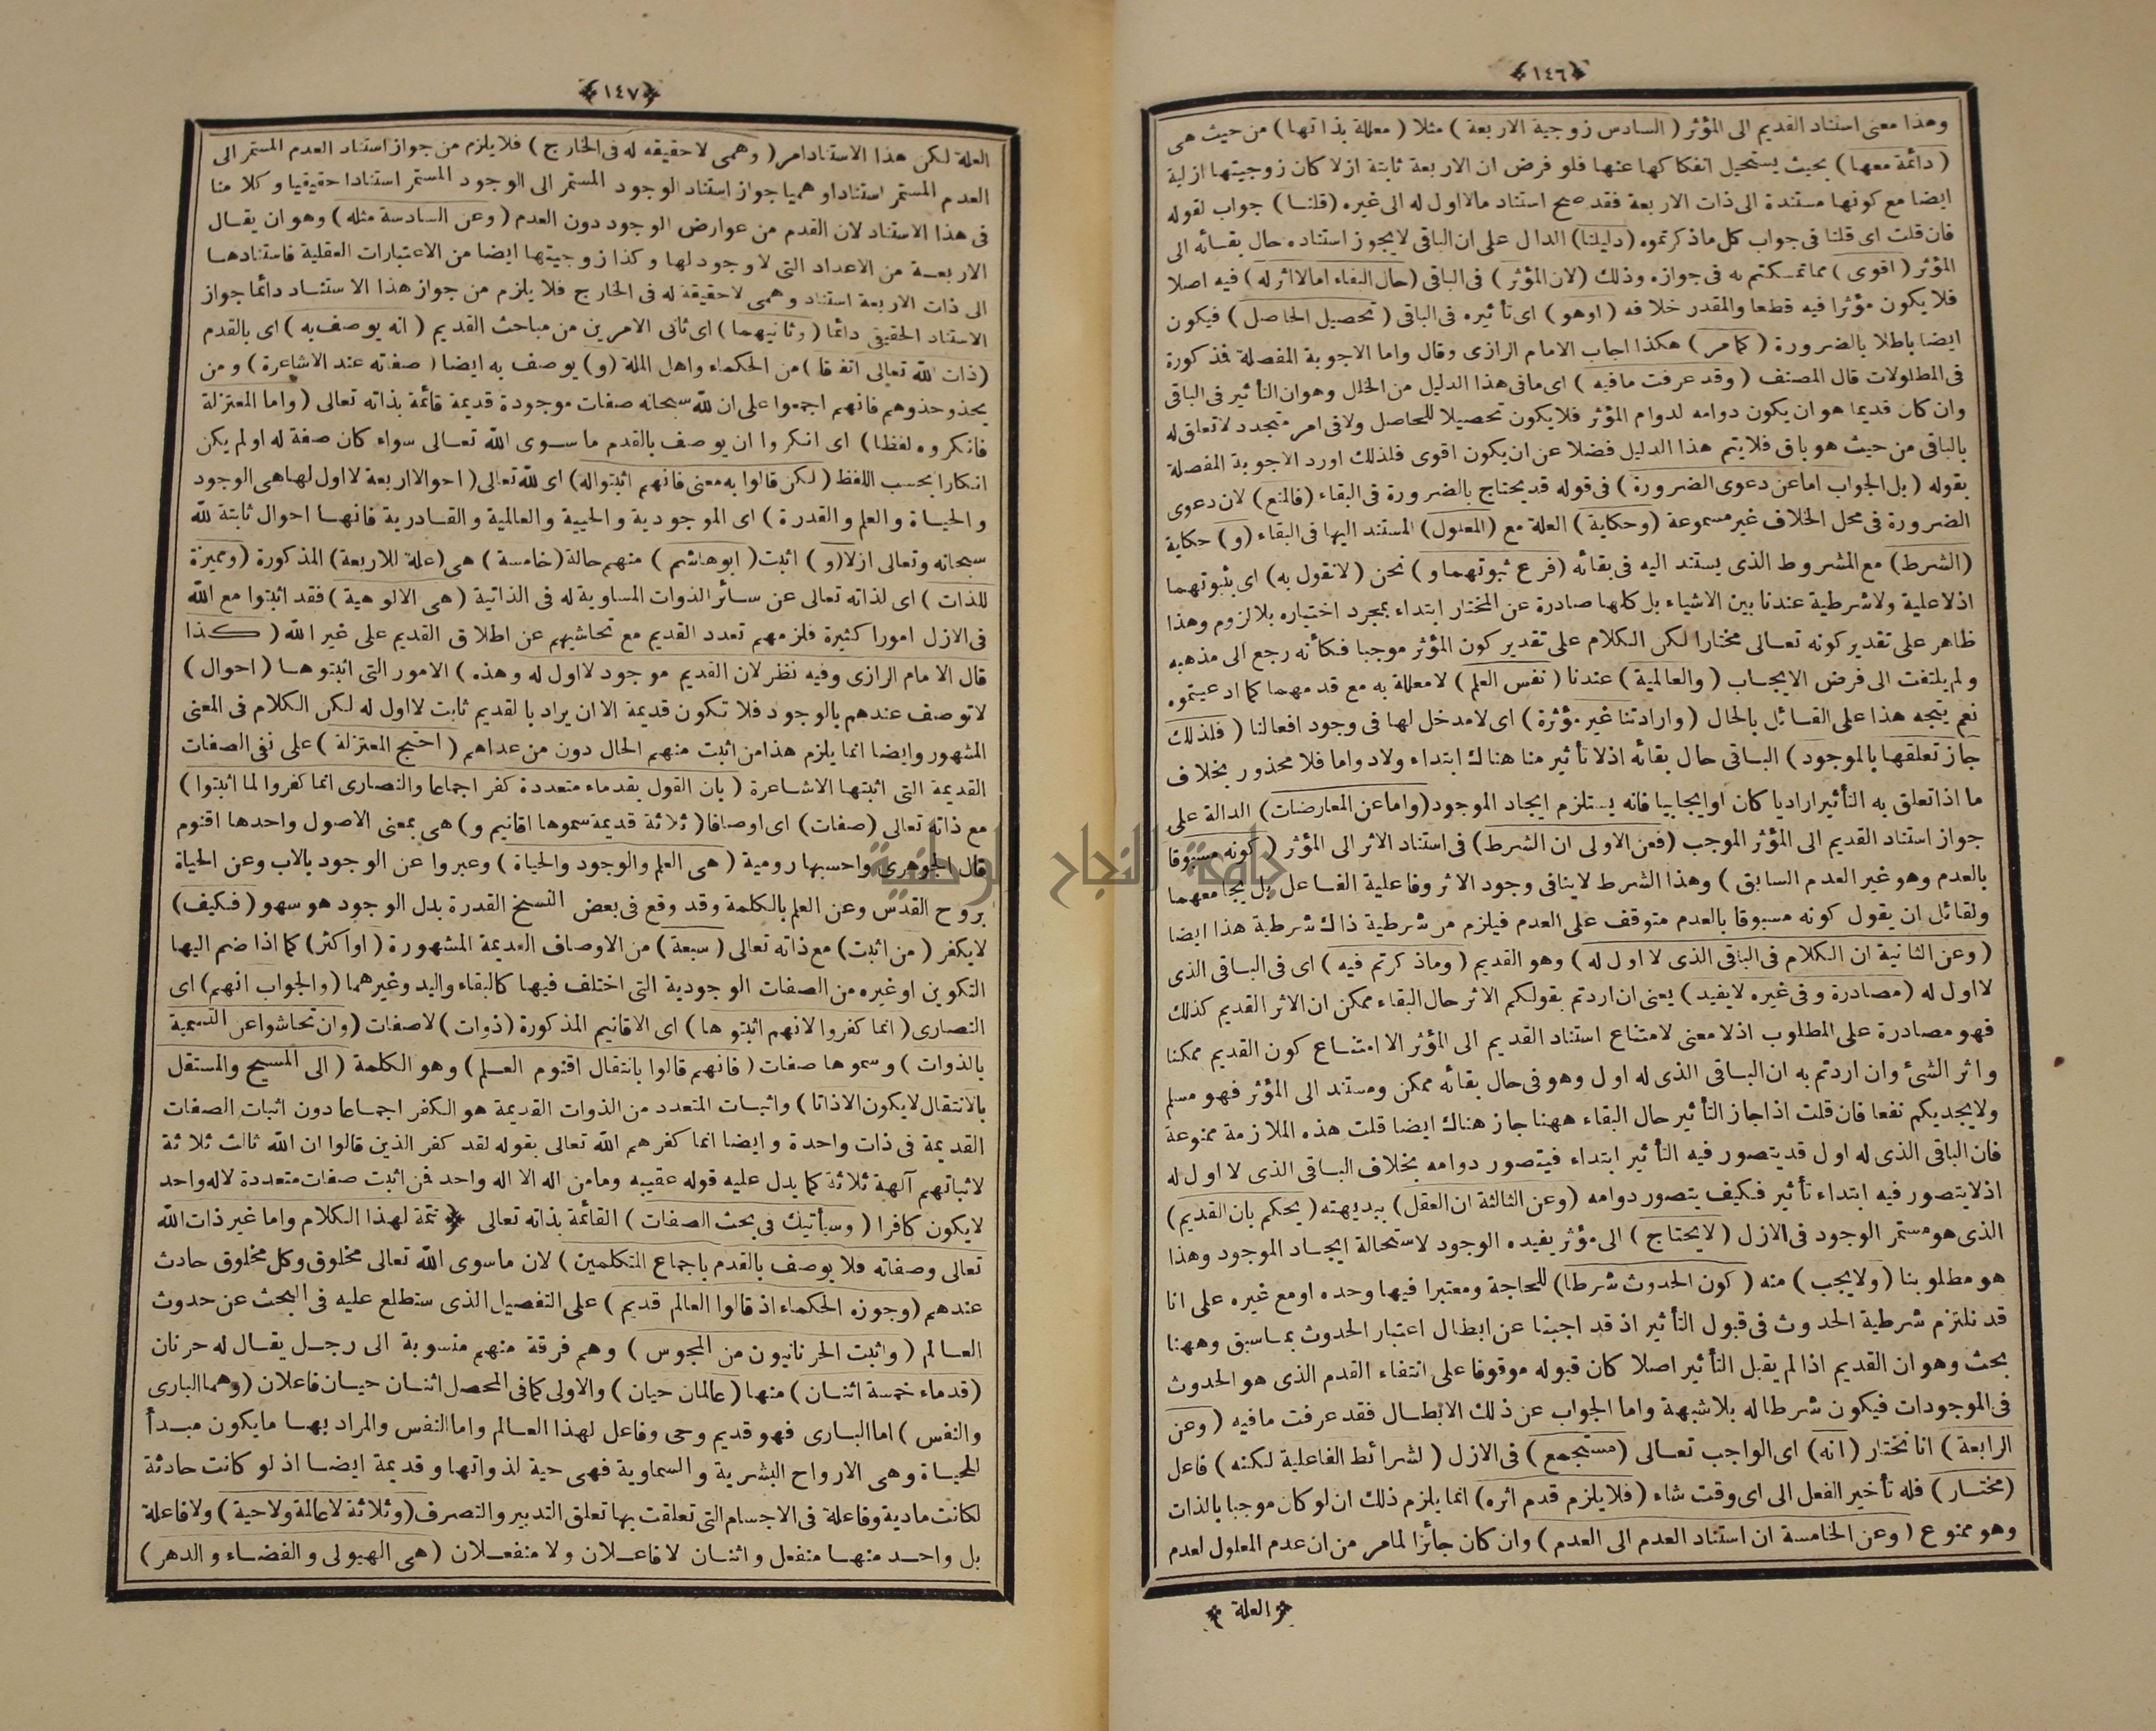 ﴿١٤٦﴾
وهذا معنى استناد القديم الى المؤثر ( السادس زوجية الاربعة ) مثلا ( معللة بذاتها ) من حيث هى
( دائمة معها ) بحيث يستحيل انفكاكها عنها فلو فرض ان الاربعة ثابتة ازلا كان زوجيتها ازلية
ايضا مع كونها مستندة الى ذات الاربعة فقد صح استناد مالااول له الى غيره ( قلنا ) جواب لقوله
فان قلت اى قلنا فى جواب كل ماذكرتموه ( دليلنا ) الدال على ان الباقى لايجوز استناده حال بقائه الى
المؤثر ( اقوى ) مماتمسكتم به فى جوازه وذلك ( لان المؤثر ) فى الباقى ( حال البقاء امالااثر له ) فيه اصلا
فلا يكون مؤثرا فيه قطعا والمقدر خلافه ( اوهو ) اى تأثيره فى الباقى ( تحصيل الحاصل ) فيكون
ايضا باطلا بالضرورة ( كمامر ) هكذا اجاب الامام الرازى وقال واما الاجوبة المفصلة فذكورة
فى المطلولات قال المصنف ( وقد عرفت مافيه ) اى مافى هذا الدليل من الخلل وهوان التأثير فى الباقى
وان كان قديما هو ان يكون دوامه لدوام المؤثر فلايكون تحصيلا للحاصل ولافى امر متجدد لاتعلق له
بالباقى من حيث هو باق فلايتم هذا الدليل فضلا عن ان يكون اقوى فلذلك اورد الاجوبة المفصلة
بقوله ( بل الجواب اما عن دعوى الضرورة ) فى قوله قد يحتاج بالضرورة فى البقاء ( فالمنع ) لان دعوى
الضرورة فى محل الخلاف غير مسموعة ( وحكاية ) العلة مع ( المعلول ) المستند اليها فى البقاء ( و ) حكاية
( الشرط ) مع المشروط الذى يستند اليه فى بقائه ( فرع ثبوتهما و ) نحن ( لانقول به ) اى بثبوتهما
اذلاعلية ولاشرطية عندنا بين الاشياء بل كلها صادرة عن المختار ابتداء بمجرد اختياره بلالزوم وهذا
ظاهر على تقدير كونه تعالى مختارا لكن الكلام على تقدير كون المؤثر موجبا فكأنه رجع الى مذهبه
ولم يلتفت الى فرض الايجاب ( والعالمية ) عندنا ( نفس العلم ) لامعللة به مع قدمهما كما ادعيتموه
نعم يتجه هذا على القائل بالحال ( وارادتنا غير مؤثرة ) اى لامدخل لها فى وجود افعالنا ( فلذلك
جاز تعلقها بالموجود ) الباقى حال بقائه اذلا تأثير منا هناك ابتداء ولادواما فلا محذور بخلاف
ما اذاتعلق به التأثير اراديا كان اوايجابيا فانه يستلزم ايجاد الموجود ( واما عن المعارضات ) الدالة على
جواز استناد القديم الى المؤثر الموجب ( فعن الاولى ان الشرط ) فى استناد الاثر الى المؤثر ( كونه مسبوقا
بالعدم وهو غير العدم السابق ) وهذا الشرط لاينافى وجود الاثر وفاعلية الفاعل بل يجامعهما
ولقائل ان يقول كونه مسبوقا بالعدم متوقف على العدم فيلزم من شرطية ذاك شرطية هذا ايضا
( وعن الثانية ان الكلام فى الباقى الذى لااول له ) وهو القديم ( وماذكرتم فيه ) اى فى الباقى الذى
لااول له ( مصادرة وفى غيره لايفيد ) يعنى ان اردتم بقولكم الاثر حال البقاء ممكن ان الاثر القديم كذلك
فهو مصادرة على المطلوب اذلامعنى لامتناع استناد القديم الى المؤثر الا امتناع كون القديم ممكنا
واثر الشئ وان اردتم به ان الباقى الذى له اول وهو فى حال بقائه ممكن ومستند الى المؤثر فهو مسلم
ولايجديكم نفعا فان قلت اذاجاز التأثير حال البقاء ههنا جاز هناك ايضا قلت هذه الملازمة ممنوعة
فان الباقى الذى له اول قديتصور فيه التأثير ابتداء فيتصور دوامه بخلاف الباقى الذى لااول له
اذلايتصور فيه ابتداء تأثير فكيف يتصور دوامه ( وعن الثالثة ان العقل ) ببديهته ( يحكم بان القديم )
الذى هو مستمر الوجود فى الازل ( لايحتاج ) الى مؤثر يفيده الوجود لاستحالة ايجاد الموجود وهذا
هو مطلوبنا ( ولايجب ) منه ( كون الحدوث شرطا ) للحاجة ومعتبرا فيها وحده اومع غيره على انا
قد نلتزم شرطية الحدوث فى قبول التأثير اذ قد اجبنا عن ابطال اعتبار الحدوث بما سبق وههنا
بحث وهو ان القديم اذا لم يقبل التأثير اصلا كان قبوله موقوفا على انتفاء القدم الذى هو الحدوث
فى الموجودات فيكون شرطاله بلاشبهة واما الجواب عن ذلك الابطال فقد عرفت مافيه ( وعن
الرابعة ) انا نختار ( انه ) اى الواجب تعالى ( مستجمع ) فى الازل ( لشرائط الفاعلية لكنه ) فاعل
( مختار ) فله تأخير الفعل الى اى وقت شاء ( فلايلزم قدم اثره ) انما يلزم ذلك ان لو كان موجبا بالذات
وهو ممنوع ( وعن الخامسة ان استناد العدم الى العدم ) وان كان جائزا لمامر من ان عدم المعلول لعدم
﴿ العلة ﴾
﴿١٤٧﴾
العلة لكن هذا الاستنادامر ( وهمى لاحقيقه له فى الخارج ) فلايلزم من جواز استناد العدم المستمر الى
العدم المستمر استنادا وهميا جواز استناد الوجود المستمر الى الوجود المستمر استنادا حقيقيا وكلامنا
فى هذا الاستناد لان القدم من عوارض الوجود دون العدم ( وعن السادسة مثله ) وهو ان يقال
الاربعة من الاعداد التى لاوجود لها وكذا زوجيتها ايضا من الاعتبارات العقلية فاستنادها
الى ذات الاربعة استناد وهمى لاحقيقة له فى الخارج فلا يلزم من جواز هذا الاستناد دائما جواز
الاستناد الحقيقى دائما ( وثانيهما ) اى ثانى الامرين من مباحث القديم ( انه يوصف به ) اى بالقدم
( ذات الله تعالى اتفاقا ) من الحكماء واهل الملة ( و ) يوصف به ايضا ( صفاته عند الاشاعرة ) ومن
يحذو حذوهم فانهم اجمعوا على ان لله سبحانه صفات موجودة قديمة قائمة بذاته تعالى ( واما المعتزلة
فانكروه لفظا ) اى انكروا ان يوصف بالقدم ماسوى الله تعالى سواء كان صفة له اولم يكن
انكارا بحسب اللفظ ( لكن قالوا به معنى فانهم اثبتواله ) اى لله تعالى ( احوالااربعة لااول لهاهى الوجود
والحياة والعلم والقدرة ) اى الموجودية والحيية والعالمية والقادرية فانها احوال ثابتة لله
سبحانه وتعالى ازلا ( و ) اثبت ( ابوهاشم ) منهم حالة ( خامسة ) هى ( علة للاربعة ) المذكورة ( ومميزة
للذات ) اى لذاته تعالى عن سائر الذوات المساوية له فى الذاتية ( هى الالوهية ) فقد اثبتوا مع الله
فى الازل امورا كثيرة فلزمهم تعدد القديم مع تحاشيهم عن اطلاق القديم على غير الله ( كذا
قال الامام الرازى وفيه نظر لان القديم موجود لااول له وهذه ) الامور التى اثبتوها ( احوال )
لاتوصف عندهم بالوجود فلا تكون قديمة الا ان يراد بالقديم ثابت لااول له لكن الكلام فى المعنى
المشهور وايضا انما يلزم هذا من اثبت منهم الحال دون من عداهم ( احتج المعتزلة ) على نفى الصفات
القديمة التى اثبتها الاشاعرة ( بان القول بقدماء متعددة كفر اجماعا والنصارى انما كفروا لما اثبتوا )
مع ذاته تعالى ( صفات ) اى اوصافا ( ثلاثة قديمة سموها اقانيم و ) هى بمعنى الاصول واحدها اقنوم
قال الجوهرى واحسبها رومية ( هى العلم والوجود والحياة ) وعبروا عن الوجود بالاب وعن الحياة
بروح القدس وعن العلم بالكلمة وقد وقع فى بعض النسخ القدرة بدل الوجود هو سهو ( فكيف )
لايكفر ( من اثبت ) مع ذاته تعالى ( سبعة ) من الاوصاف القديمة المشهورة ( اواكثر ) كما اذا ضم اليها
التكوين اوغيره من الصفات الوجودية التى اختلف فيها كالبقاء واليد وغيرهما ( والجواب انهم ) اى
النصارى ( انما كفروا لانهم اثبتوها ) اى الاقانيم المذكورة ( ذوات ) لاصفات ( وان تحاشوا عن التسمية
بالذوات ) وسموها صفات ( فانهم قالوا بانتقال اقنوم العلم ) وهو الكلمة ( الى المسيح والمستقل
بالانتقال لايكون الاذاتا ) واثبات المتعدد من الذوات القديمة هو الكفر اجماعا دون اثبات الصفات
القديمة فى ذات واحدة وايضا انما كفرهم الله تعالى بقوله لقد كفر الذين قالوا ان الله ثالث ثلاثة
لاثباتهم آلهة ثلاثة كما يدل عليه قوله عقيبه ومامن اله الا اله واحد فمن اثبت صفات متعددة لاله واحد
لايكون كافرا ( وسيأتيك فى بحث الصفات ) القائمة بذاته تعالى ﴿ تتمة لهذا الكلام واما غير ذات الله
تعالى وصفاته فلا يوصف بالقدم باجماع المتكلمين ) لان ماسوى الله تعالى مخلوق وكل مخلوق حادث
عندهم ( وجوزه الحكماء اذ قالوا العالم قديم ) على التفصيل الذى ستطلع عليه فى البحث عن حدوث
العالم ( واثبت الحرنانيون من المجوس ) وهم فرقة منهم منسوبة الى رجل يقال له حرنان
( قدماء خمسة اثنان ) منها ( عالمان حيان ) والاولى كمافى المحصل اثنان حيان فاعلان ( وهما البارى
والنفس ) اماالبارى فهو قديم وحى وفاعل لهذا العالم واما النفس والمراد بها مايكون مبدأ
للحياة وهى الارواح البشرية والسماوية فهى حية لذواتها وقديمة ايضا اذ لو كانت حادثة
لكانت مادية وفاعلة فى الاجسام التى تعلقت بها تعلق التدبير والتصرف ( وثلاثة لاعالمة ولاحية ) ولافاعلة
بل واحد منها منفعل واثنان لافاعلان ولا منفعلان ( هى الهيولى والفضاء والدهر )
جامعة النجاح الوطنية